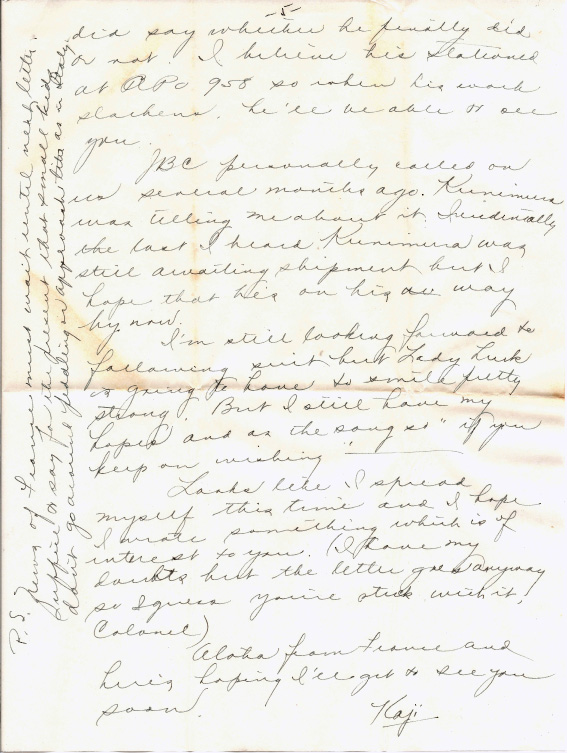 -5-
did say whether he finally did
or not. I believe his stationed
at APO 958 so when his work
slackens. he'll be able to see
you.
JBC personally called on
us several months ago. Kunimura
was telling me about it. Incidentally
the last I heard Kunimura was
still awaiting shipment but I
hope that he's on his way
by now.
I'm still looking forward to
following suit but Lady Luck
is going to have to smile pretty
strong. But I still have my
hopes and as the song so "if you
keep on wishing"
Looks like I spread
myself this time and I hope
I wrote something which is of
interest to you. (I have my
doubts but the letter goes anyway
so I guess you're stuck with it,
Colonel)
Aloha from France and
here's hoping I'll get to see you
soon.
Kaji
P.S. News of France must wait until next letter.
Suffice to say for the present that small kids
don't go around peddling or approach like as in Italy.